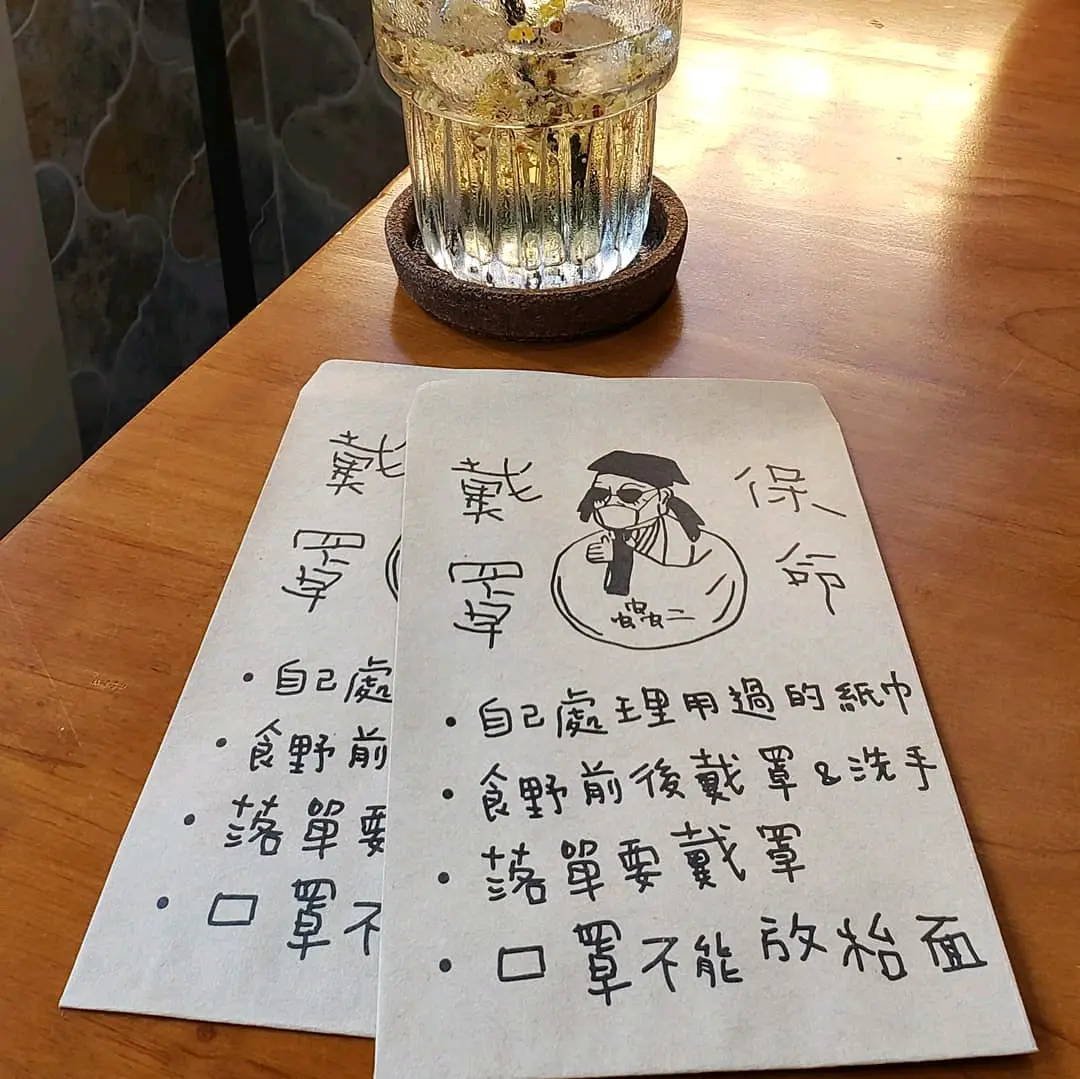 戴罩
自己處
食野前
落單要
口罩不
戴罩
保命
自己處理用過的紙巾
食野前後戴罩&洗手
落單要戴罩
口罩不能放枱面